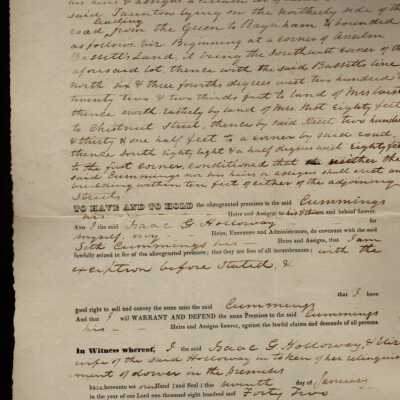 said Taunton lying on the Northerly side of the
leading
road from the Green to Raynham & bounded
as follows viz Beginning at a corner of Anselm
Bassett's Land, it being the Southwest corner of the
aforesaid lot, thence with the said Bassetts line
North six & three fourths degrees west two hundred &
twenty two & two thirds feet to land of Mrs
thence north easterly by land of Mrs Eighty feet
to Chestnut Street, thence by said Street two hundred
& thirty & one half feet to a corner by said road,
thence South eighty eight & a half degrees west Eighty feet
to the first corner, conditioned that neither the
said Cummings nor his heirs or assigns shall erect any
building within ten feet of either of the adjoining
Streets.
TO HAVE AND TO HOLD the aforegranted premises to the said Cummings
his Heirs and Assigns to his use and behoof forever.
And I the said Isaac G. Holloway for
myself, my Heirs, Executors and Administrators, do covenant with the said
Seth Cummings his Heirs and Assigns, that I am
lawfully seized in fee of the aforegranted premises; that they are free of all incumbrances; with the
exception before stated, &
that I have
good right to sell and convey the same unto the said Cummings
And that I will WARRANT AND DEFEND the same Premises to the said Cummings
his Heirs and Assigns forever, against the lawful claims and demands of all persons
In Witness whereof, I the said Isaac G. Holloway, &
wife of the said Holloway in token of her relinquish
ment of dower in the premises
have hereunto set our Hand and Seal this seventh day of January
in the year of our Lord one thousand eight hundred and Forty Two